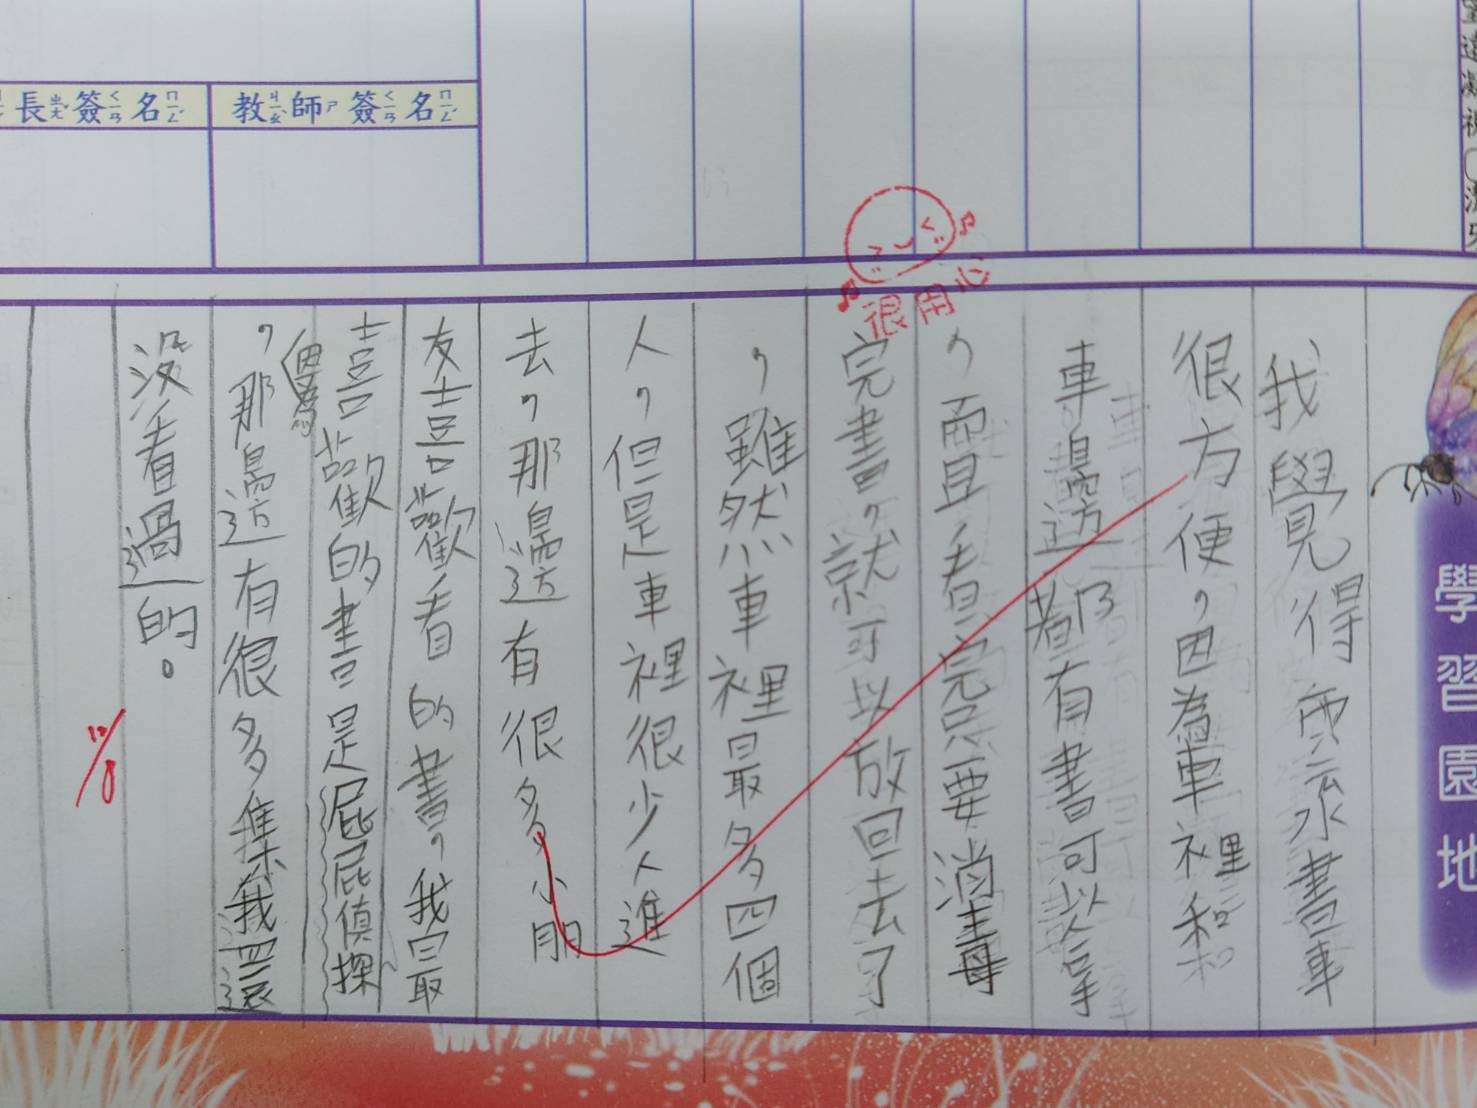 長簽名
教師簽名
很用心
學習園地
我覺得雲水書車
很方便，因為車裡和
車邊都有書可以拿
，而且看完只要消毒
完書，就可以放回去了
，雖然車裡最多四個
人，但是車裡很少人進
去，那邊有很多小朋
友喜歡看的書，我最
喜歡的書是屁屁偵探
，因為那邊有很多集我還
沒看過的。